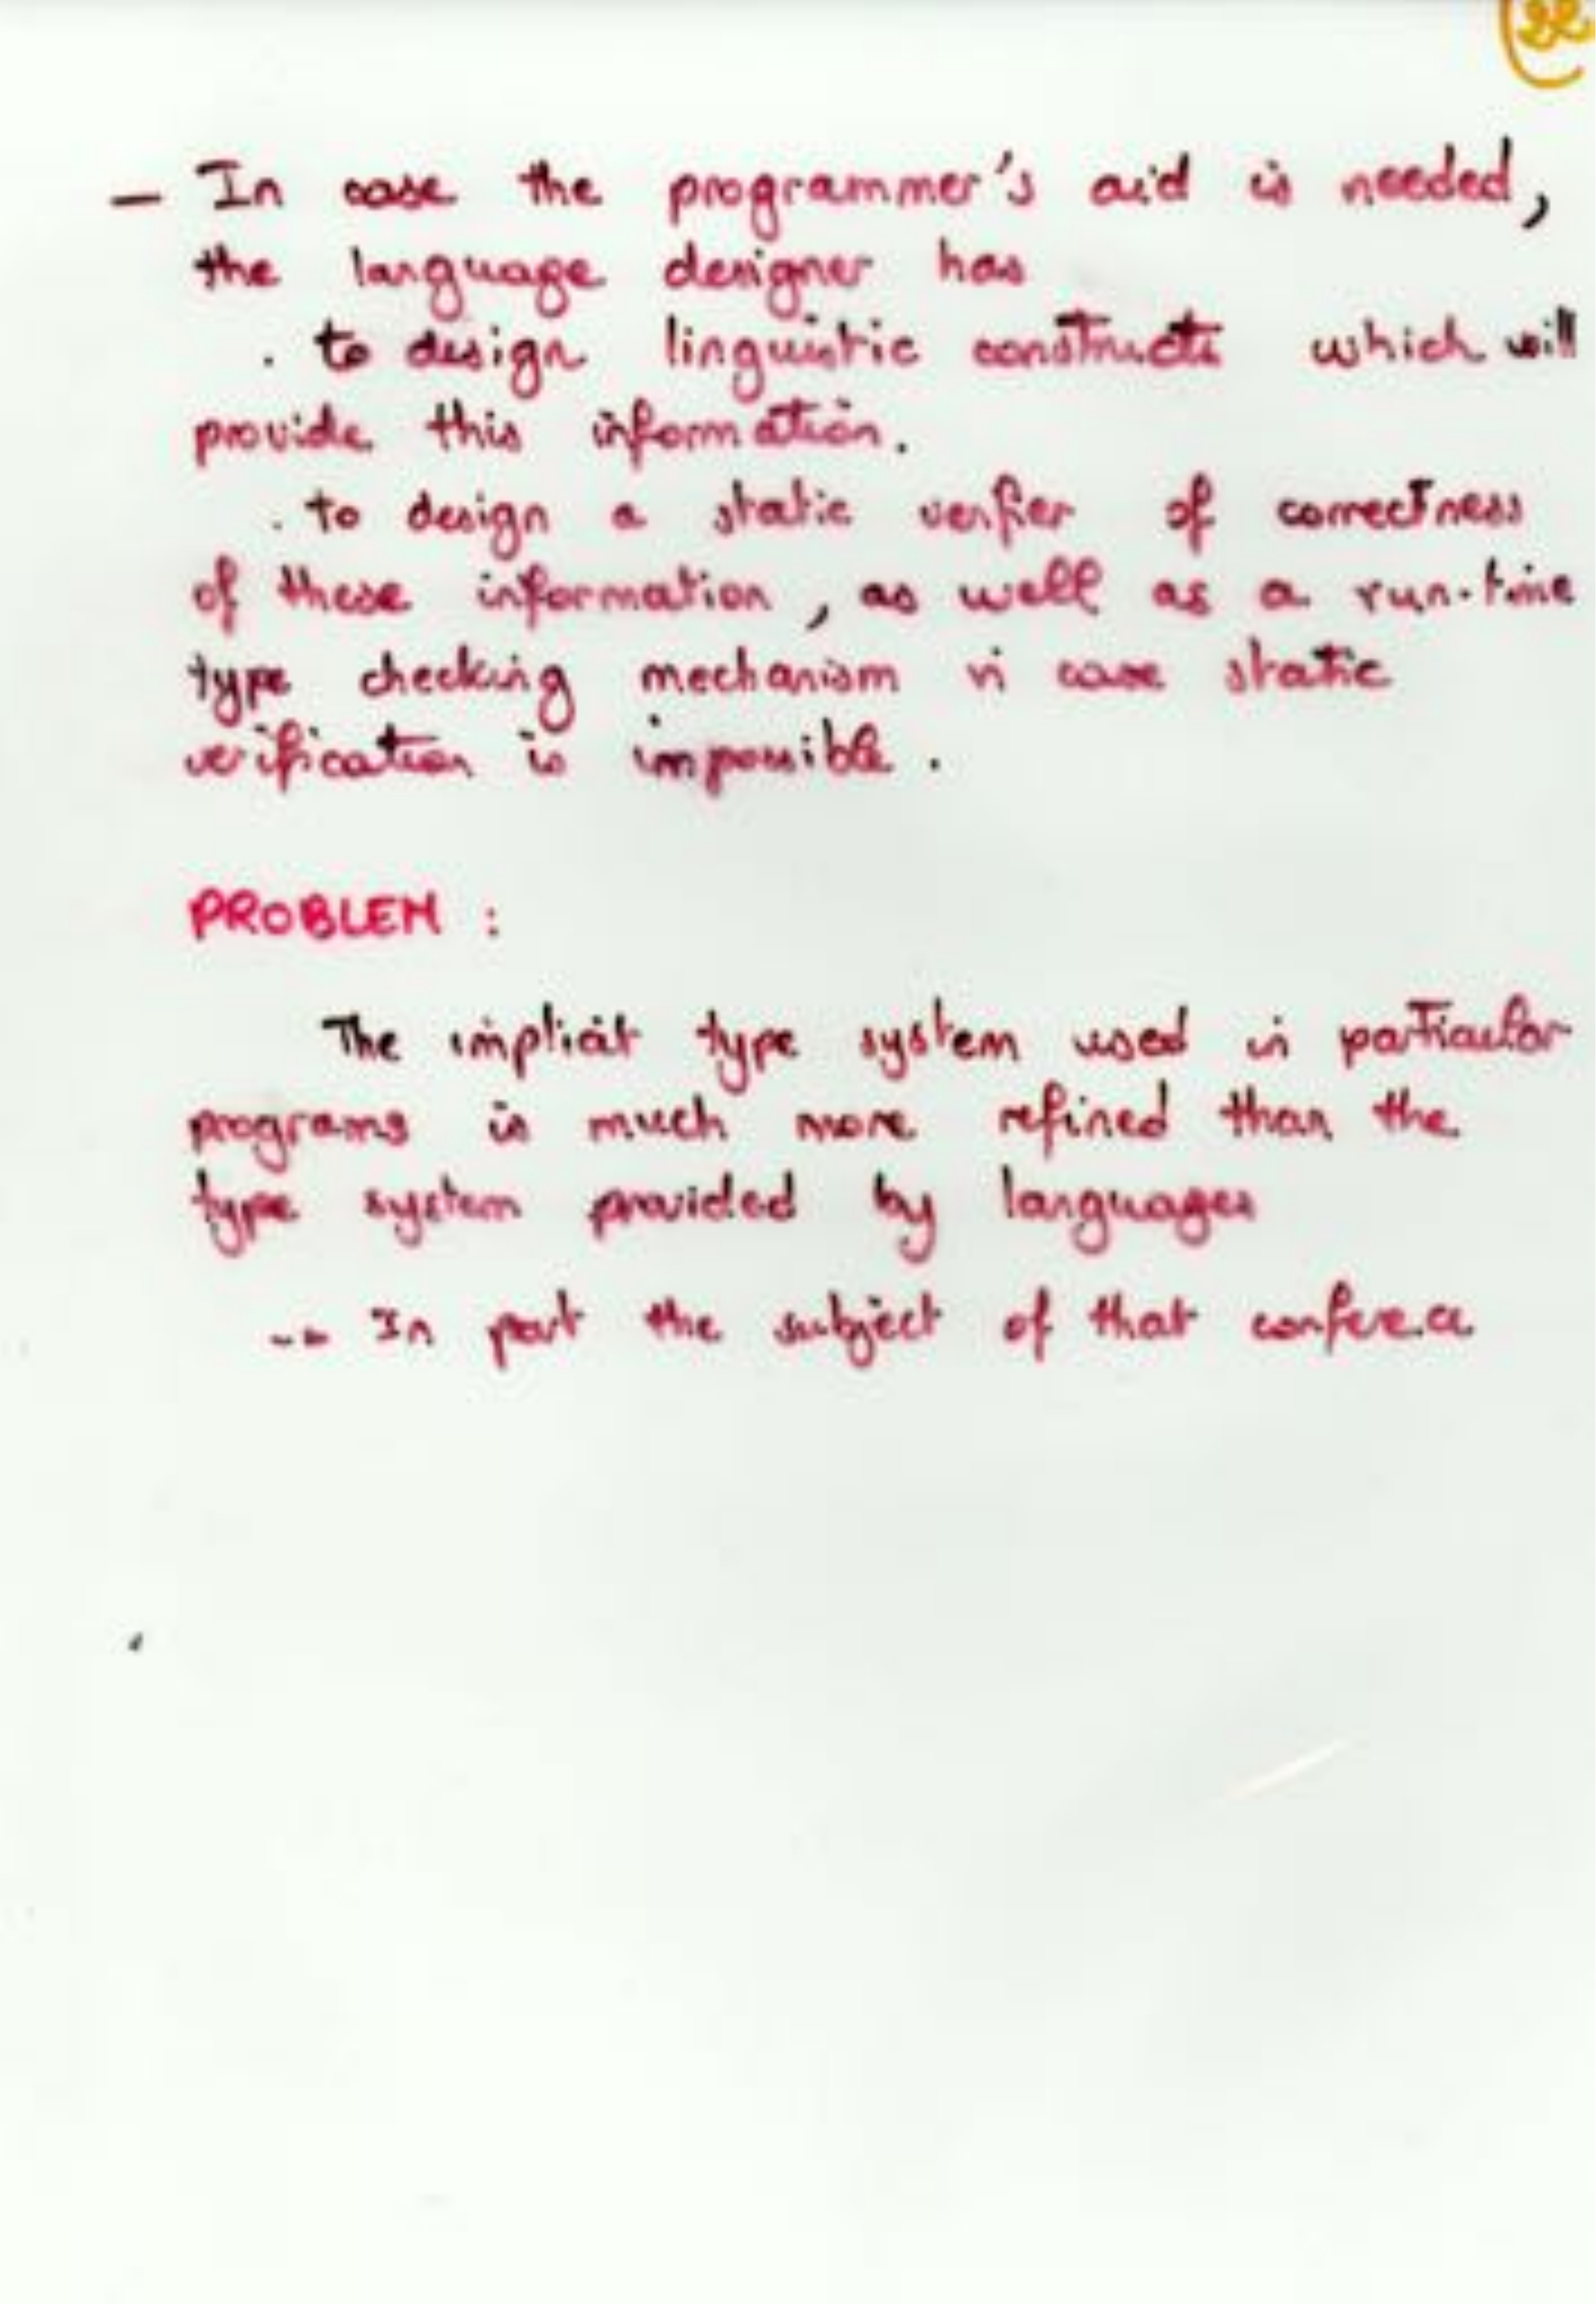 — In case the programmer's aid is needed,
the language designer has
. to design linguistic constructs which will
provide this information.
. to design a static verifier of correctness
of these information, as well as a run-time
type checking mechanism in case static
verification is impossible.
PROBLEM :
The implicit type system used in particular
programs is much more refined than the
type system provided by languages
-- In part the subject of that conference